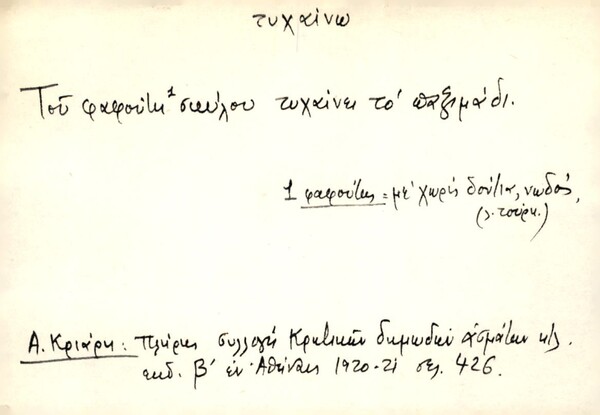 τυχαίνω
Τοῦ φαφούτη¹ σκύλου τυχαίνει τό παξιμάδι.
1 φαφούτης = μέ χωρίς δόντια, νωδός,
(λ. τούρκ.)
Α. Κριάρη: Πλήρης συλλογή Κρητικῶν δημωδῶν ᾀσμάτων κ.λ.
εκδ. β΄ ἐν Ἀθήναις 1920-21 σελ. 426.